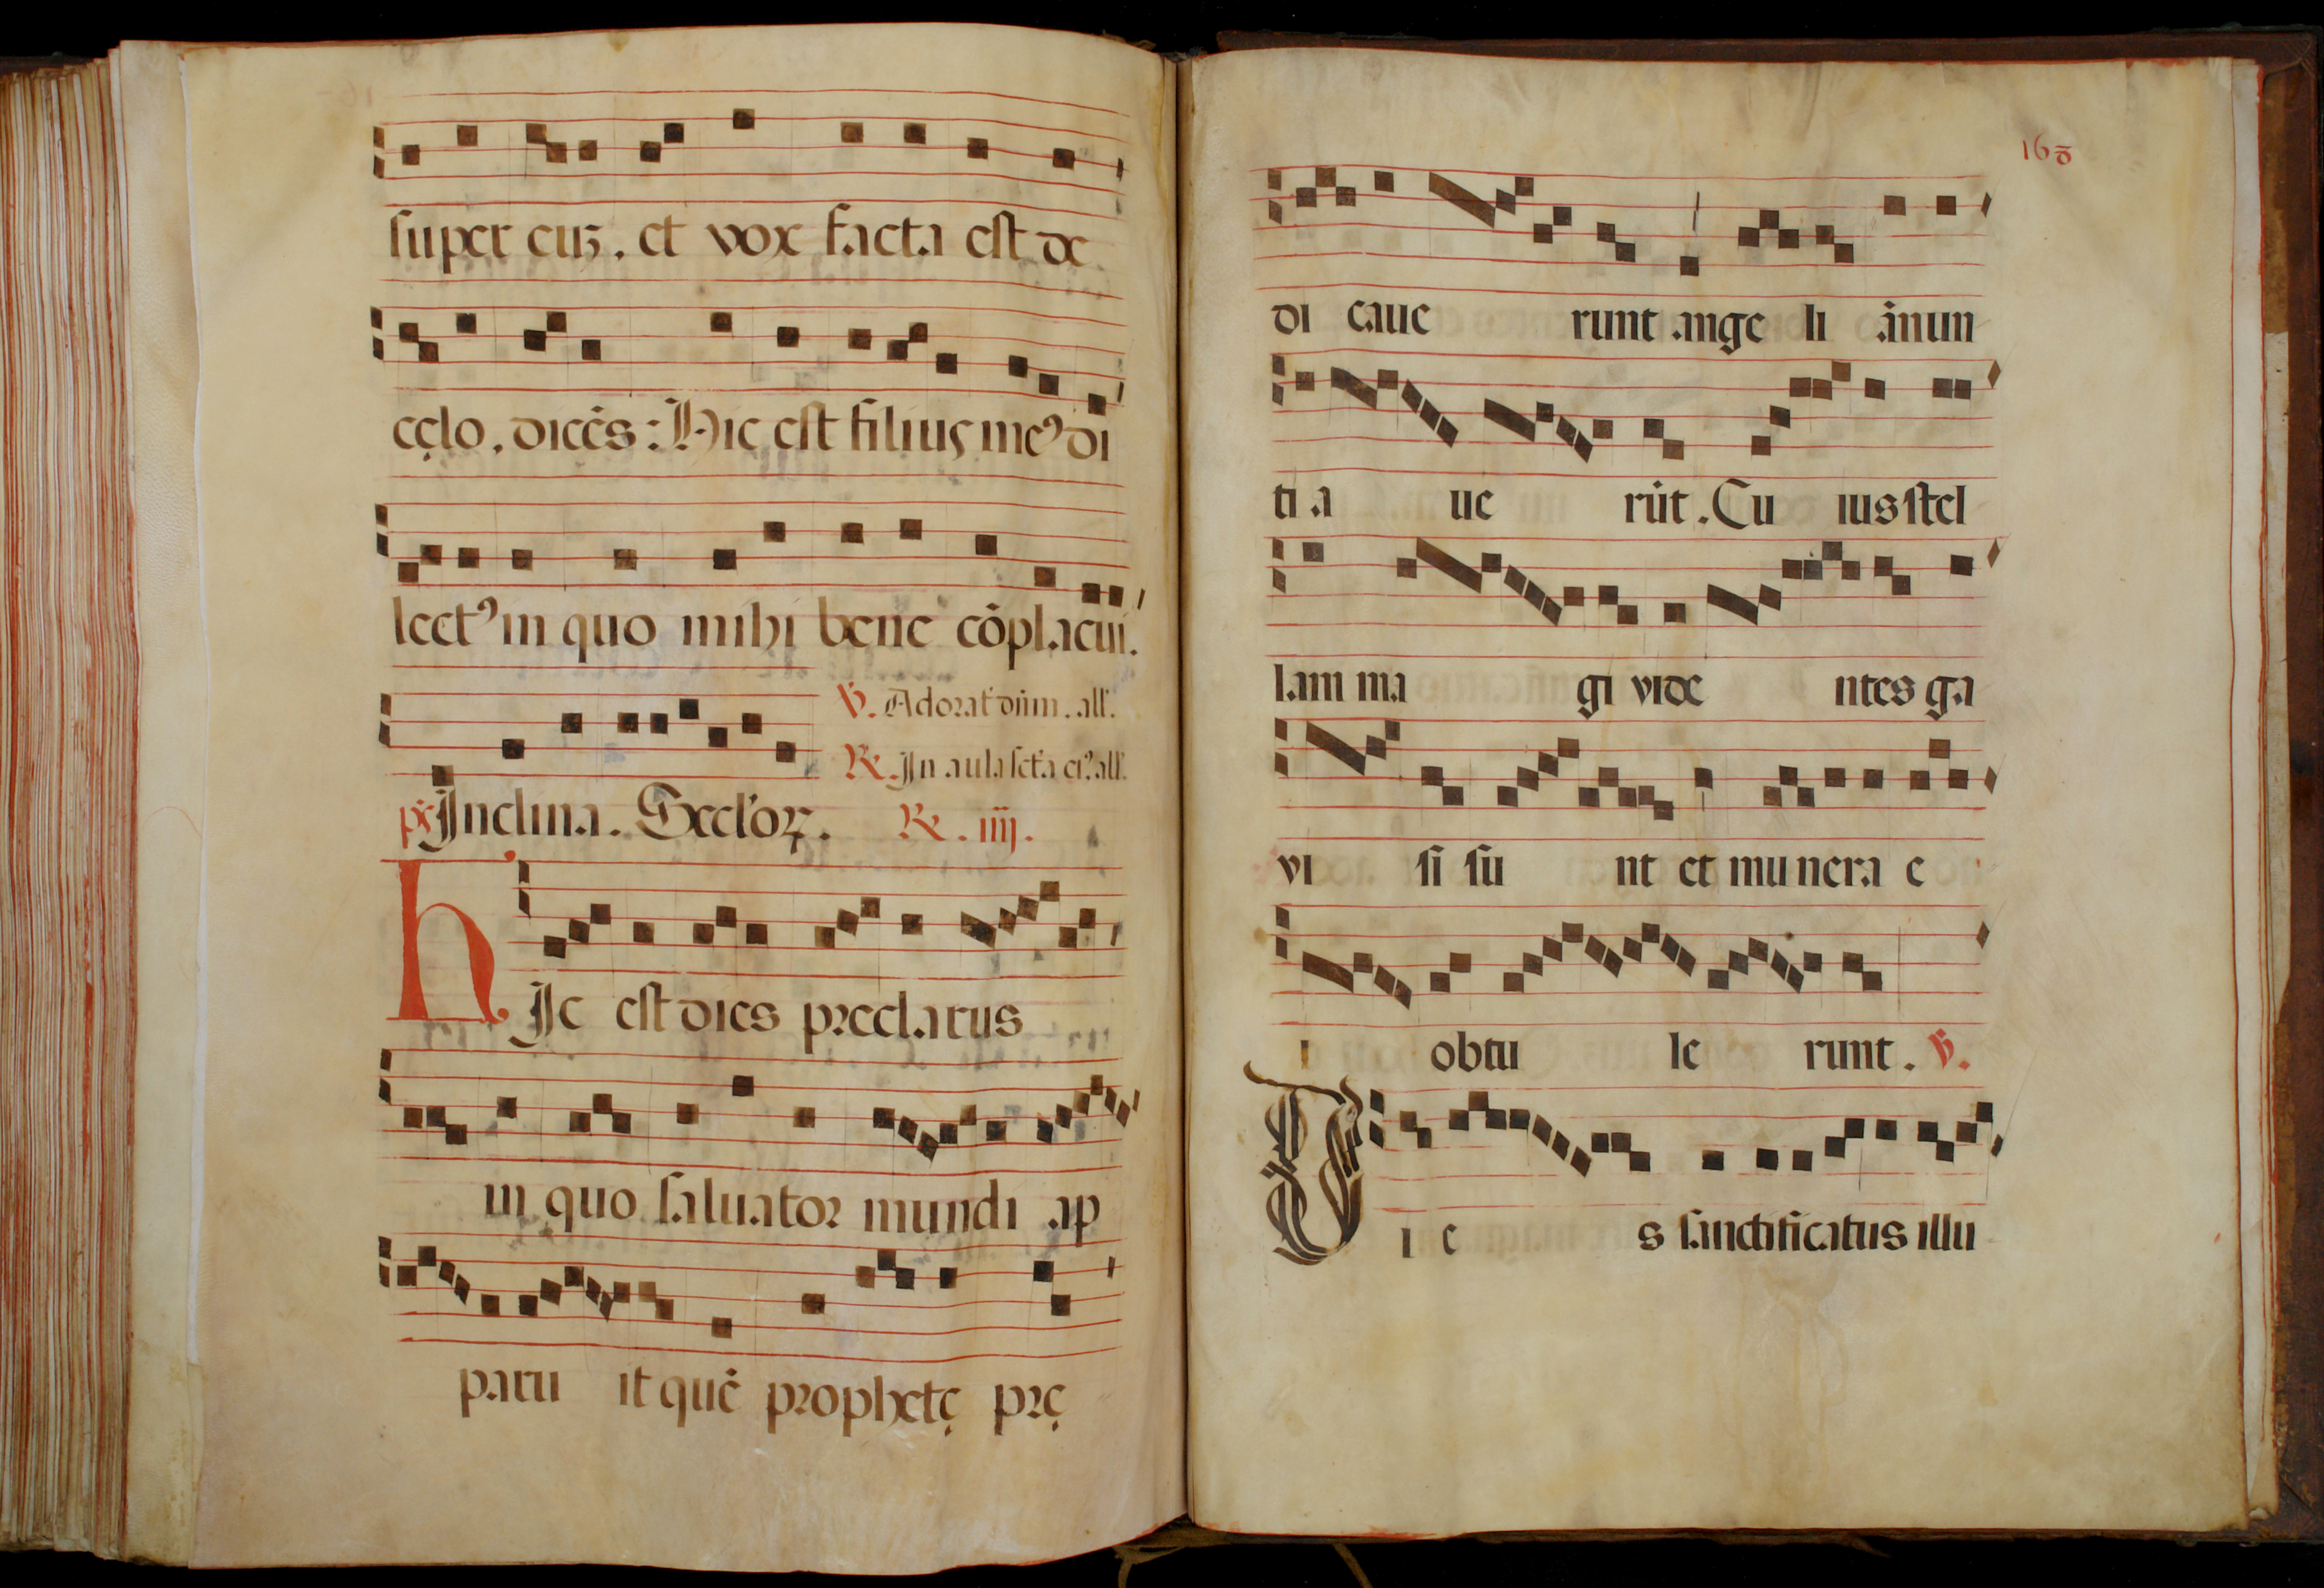 super euꝫ. et vox facta est de
cęlo, dicēs: Hic est filius meꝰ di
lectꝰ in quo mihi bene cōplacui.
℣. Adorat dūm. all'.
℟. In aula scta eiꝰ. all'.
ps Inclina. Seclꝛoꝝ. ℟. iiij.
HIc est dies preclarus
in quo saluator mundi ap
paru it quē prophetę prę
168
di caue runt ange li ānun
ti a ue rūt. Cu ius stel
lam ma gi vide ntes ga
vi si su nt et mu nera e
i obtu le runt. ℣.
DI e s sanctificatus illu